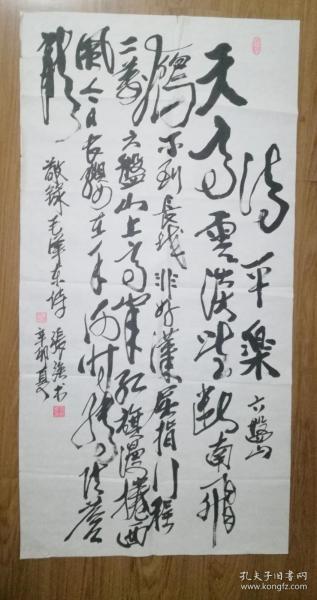 清平樂 六盤山
天高雲淡望斷南飛
雁不到長城非好漢屈指行程
二萬六盤山上高峰紅旗漫捲西
風今日長纓在手何時縛住蒼
龍
敬錄毛澤東詩
辛卯夏 張
孔夫子旧书网